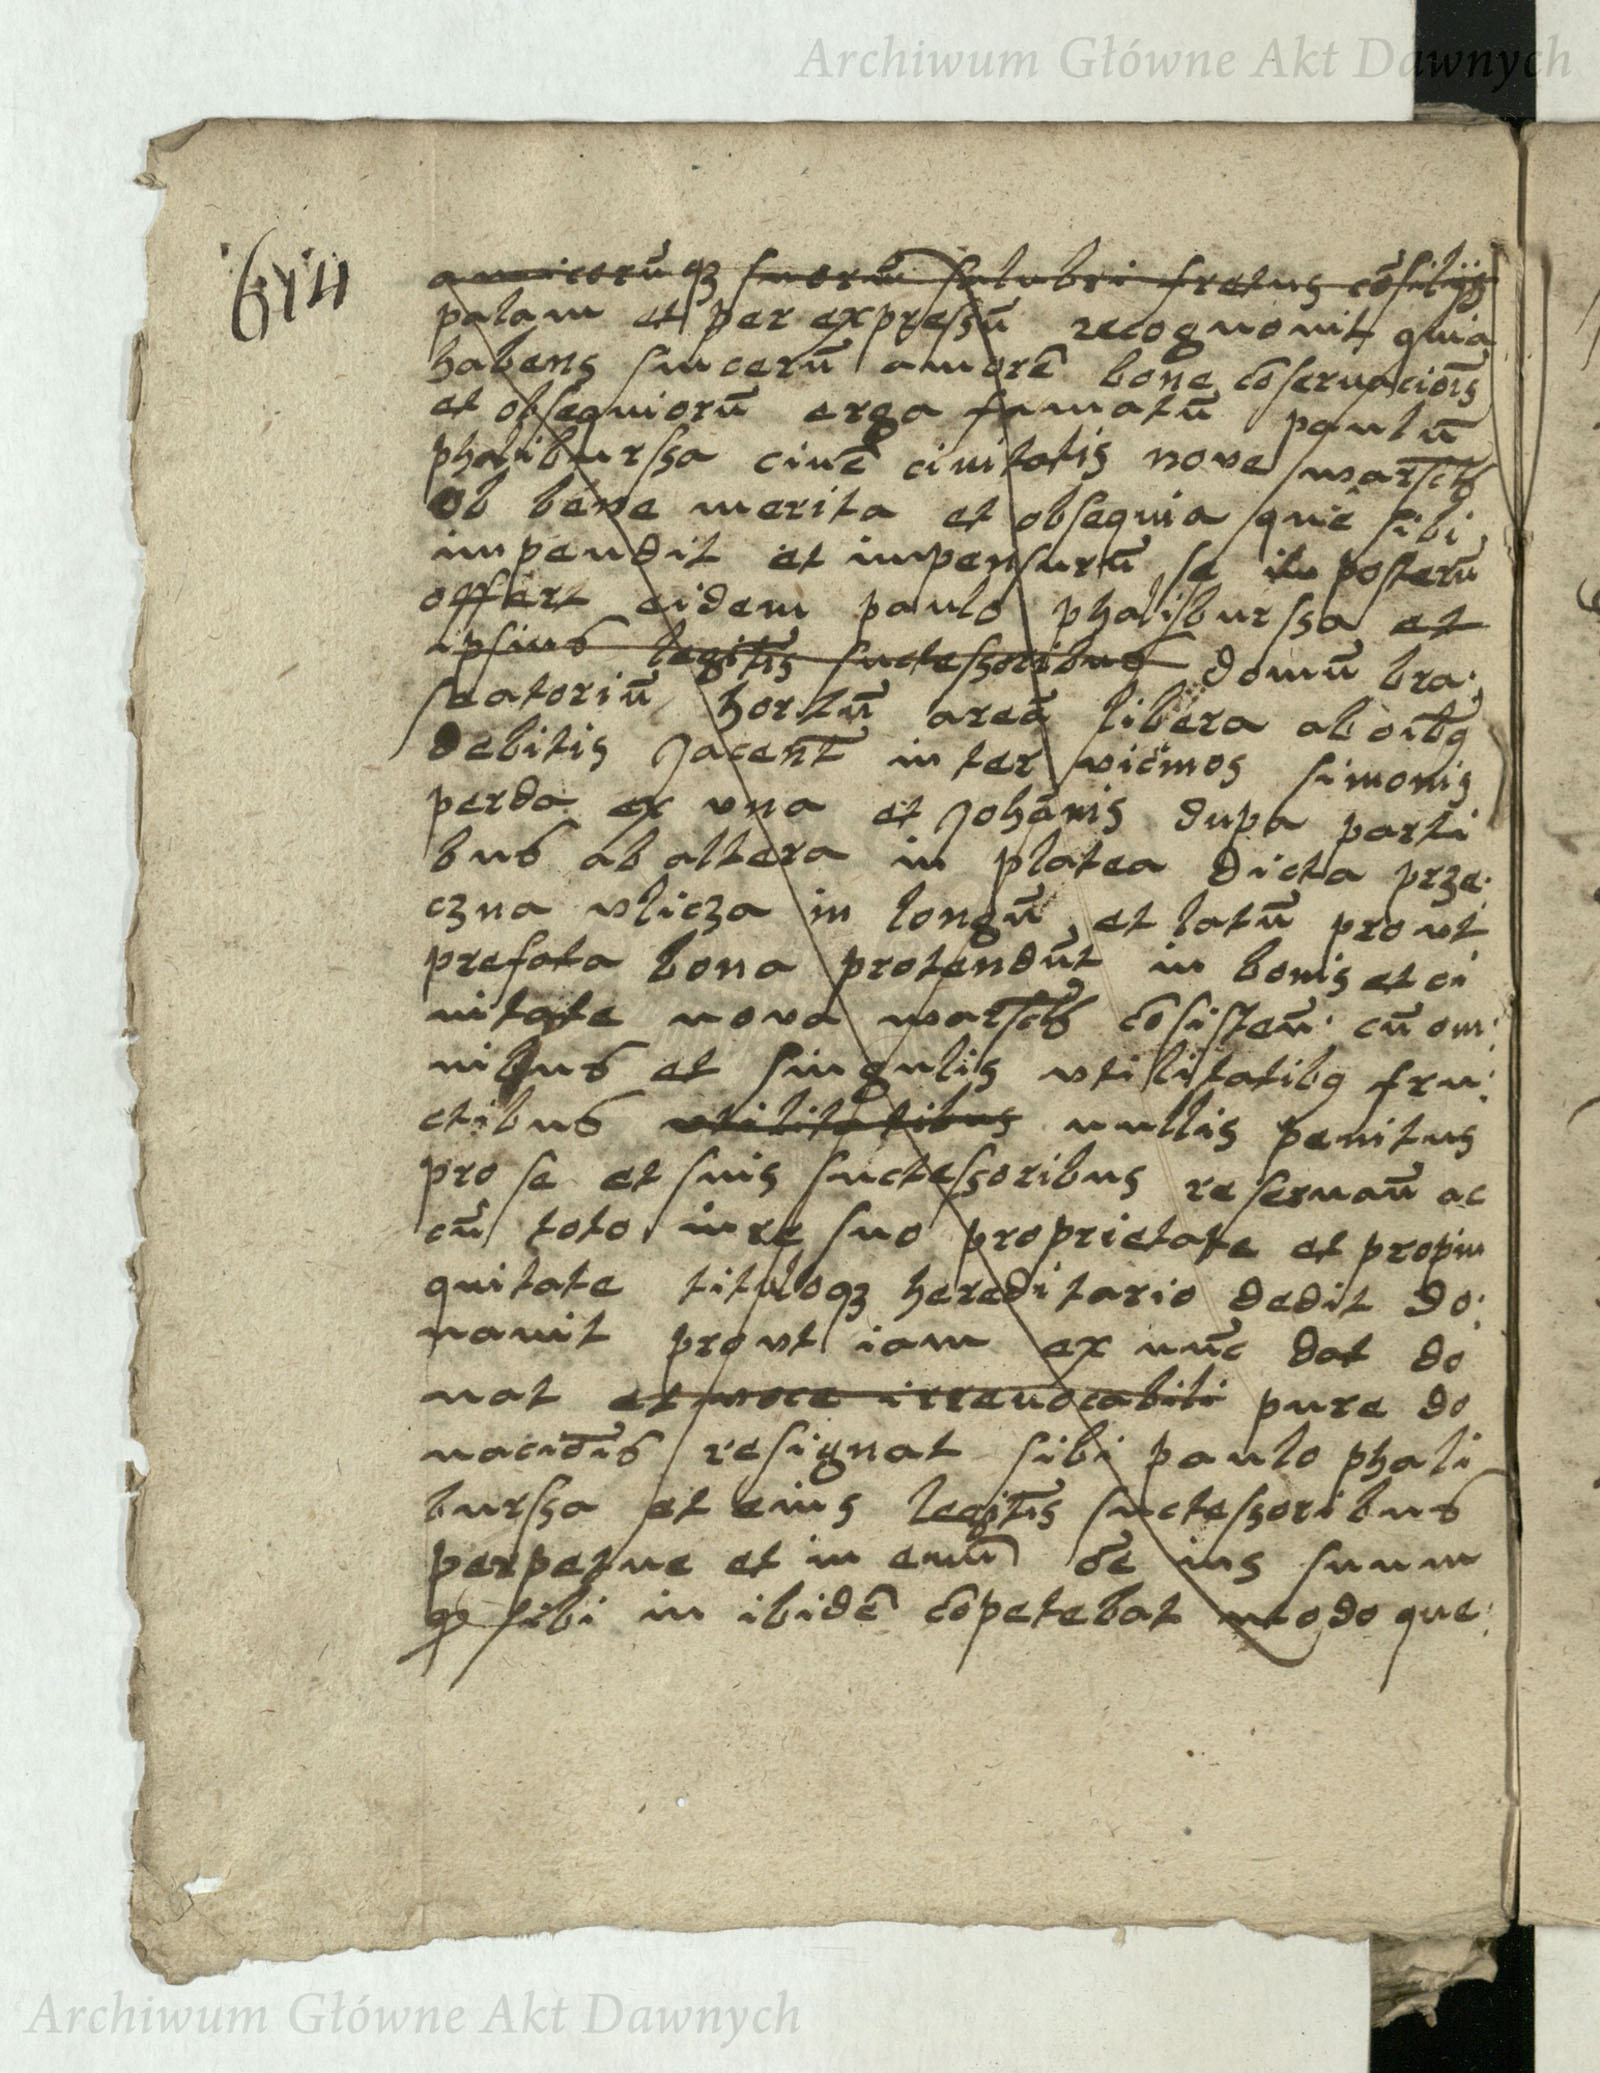 Archiwum Główne Akt Dawnych
614
amicorū qꝫ suorū salubri fretus cōsilijs
palam et per expressū recognouit quia
habens sincerū amorē bone cōseruaciōis
et obsequiorū erga famatū paulū
phaliburssa ciuē ciuitatis nove warsch
ob bene merita et obsequia que sibi
impendit et impensurū se in posterū
offert eidem paulo phalisburssa et
ipsius legitīs suctessoribus domū bra
seatoriū hortū areā libera ab oībq
debitis Jacent inter vicinos simonis
perda ex vna et Johānis dupa parti
bus ab altera in platea dicta prze
czna vlicza in longū et latū prout
prefata bona protendūt in bonis et ci
uitate nova warsch cōsisteū cū om
nibus et singulis vtilitatibq fru
ctibus vtilitatibus nullis penitus
pro se et suis suctessoribus reseruaū ac
cū toto iure suo proprietate et propin
quitate tituloqꝫ hereditario dedit do
nauit prout iam ex nūc dat do
nat et voce irreuocabili pure do
naciōis resignat sibi paulo phali
burssa et eius legitīs suctessoribus
perpetue et in eum ōe ius suum
qꝫ sibi in ibidē cōpetebat modo que
Archiwum Główne Akt Dawnych